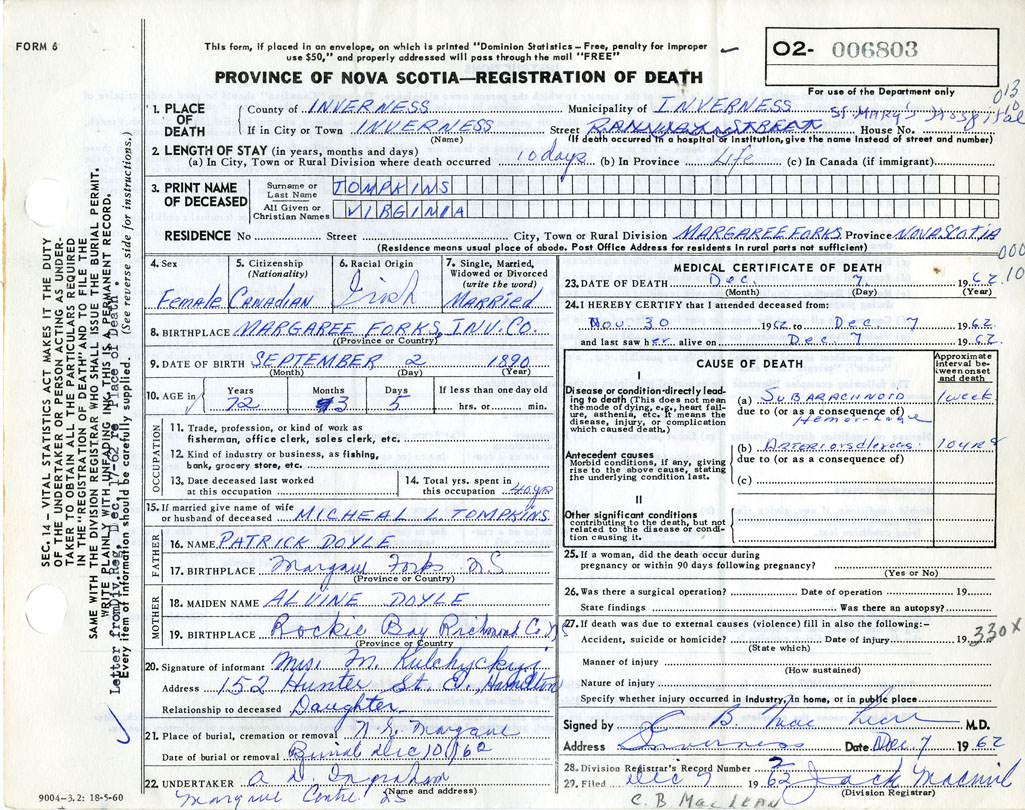 FORM 6
This form, if placed in an envelope, on which is printed "Dominion Statistics – Free, penalty for improper
use $50," and properly addressed will pass through the mail "FREE"
PROVINCE OF NOVA SCOTIA—REGISTRATION OF DEATH
02- 006803
For use of the Department only
013
10
1. PLACE OF DEATH
County of INVERNESS Municipality of INVERNESS
St Mary's Hospital
If in City or Town INVERNESS Street RAILWAY STREET House No.
(Name) (If death occurred in a hospital or institution, give the name instead of street and number)
2. LENGTH OF STAY (in years, months and days)
(a) In City, Town or Rural Division where death occurred 10 days (b) In Province Life (c) In Canada (if immigrant)
3. PRINT NAME OF DECEASED
Surname or Last Name TOMPKINS
All Given or Christian Names VIRGINIA
RESIDENCE No Street City, Town or Rural Division MARGAREE FORKS Province NOVA SCOTIA
(Residence means usual place of abode. Post Office Address for residents in rural parts not sufficient)
000
10
4. Sex Female
5. Citizenship (Nationality) Canadian
6. Racial Origin Irish
7. Single, Married, Widowed or Divorced (write the word) MARRIED
8. BIRTHPLACE MARGAREE FORKS, INV. CO.
(Province or Country)
9. DATE OF BIRTH SEPTEMBER 2 1890
(Month) (Day) (Year)
10. AGE in Years 72 Months 3 Days 5 If less than one day old hrs. or min.
OCCUPATION
11. Trade, profession, or kind of work as
fisherman, office clerk, sales clerk, etc.
12. Kind of industry or business, as fishing,
bank, grocery store, etc.
13. Date deceased last worked
at this occupation
14. Total yrs. spent in
this occupation 40 yrs
15. If married give name of wife
or husband of deceased MICHEAL L. TOMPKINS
FATHER
16. NAME PATRICK DOYLE
17. BIRTHPLACE Margaree Forks NS
(Province or Country)
MOTHER
18. MAIDEN NAME ALVINE DOYLE
19. BIRTHPLACE Rockie Bay Richmond Co. NS
(Province or Country)
20. Signature of informant Mrs. M.
Address 152 Hunter St. Hamilton
Relationship to deceased Daughter
21. Place of burial, cremation or removal N.E. Margaree
Date of burial or removal Burial Dec 10/62
22. UNDERTAKER A D. Ingraham
(Name and address)
Margaree Centre NS
9004-3.2: 18-5-60
MEDICAL CERTIFICATE OF DEATH
23. DATE OF DEATH Dec. 7 1962
(Month) (Day) (Year)
24. I HEREBY CERTIFY that I attended deceased from:
Nov. 30 1962 to Dec 7 1962
and last saw her alive on Dec 7 1962
CAUSE OF DEATH
Approximate interval between onset and death
I
Disease or condition directly leading to death (This does not mean the mode of dying, e.g., heart failure, asthenia, etc. It means the disease, injury, or complication which caused death.)
(a) SUBARACHNOID 1 week
due to (or as a consequence of)
Hemorrhage
Antecedent causes
Morbid conditions, if any, giving rise to the above cause, stating the underlying condition last.
(b) Arteriosclerosis 10 yrs
due to (or as a consequence of)
(c)
II
Other significant conditions
contributing to the death, but not related to the disease or condition causing it.
25. If a woman, did the death occur during
pregnancy or within 90 days following pregnancy?
(Yes or No)
26. Was there a surgical operation? Date of operation 19
State findings Was there an autopsy?
27. If death was due to external causes (violence) fill in also the following:-
Accident, suicide or homicide? Date of injury 19
(State which)
330X
Manner of injury
(How sustained)
Nature of injury
Specify whether injury occurred in industry, in home, or in public place
Signed by C. B. Mac Lean M.D.
Address Inverness Date Dec 7 1962
28. Division Registrar's Record Number
29. Filed Dec 1962 Jack
(Division Registrar)
C. B. MacLEAN
SEC. 14 – VITAL STATISTICS ACT MAKES IT THE DUTY
OF THE UNDERTAKER OR PERSON ACTING AS UNDER-
TAKER TO OBTAIN ALL THE PARTICULARS REQUIRED
IN THE "REGISTRATION OF DEATH" AND TO FILE THE
SAME WITH THE DIVISION REGISTRAR WHO SHALL ISSUE THE BURIAL PERMIT.
WRITE PLAINLY WITH UNFADING INK. THIS IS A PERMANENT RECORD.
Letter from Div. Reg. Dec. 17-62 re Place of Death.
Every item of information should be carefully supplied. (See reverse side for instructions.)